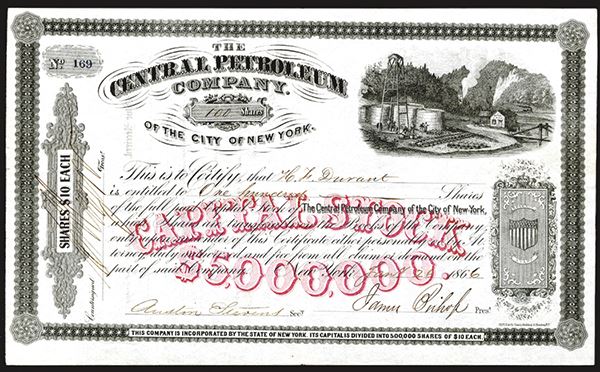 THE
CENTRAL PETROLEUM
COMPANY.
No 169
100 Shares
OF THE CITY OF NEW YORK.
This is to Certify, that H. F. Durant
is entitled to One hundred Shares
of the full paid Capital Stock of The Central Petroleum Company of the City of New-York,
only upon surrender of this Certificate either personally or by
torney, duly and free from all claim or demand on the
part of said Company. New York, 1866
CAPITAL STOCK
$5,000,000
SHARES $10 EACH
Countersigned
Auston Stevens Secy
James Bishop Prest
THIS COMPANY IS INCORPORATED BY THE STATE OF NEW YORK. ITS CAPITAL IS DIVIDED INTO 500,000 SHARES OF $10 EACH.